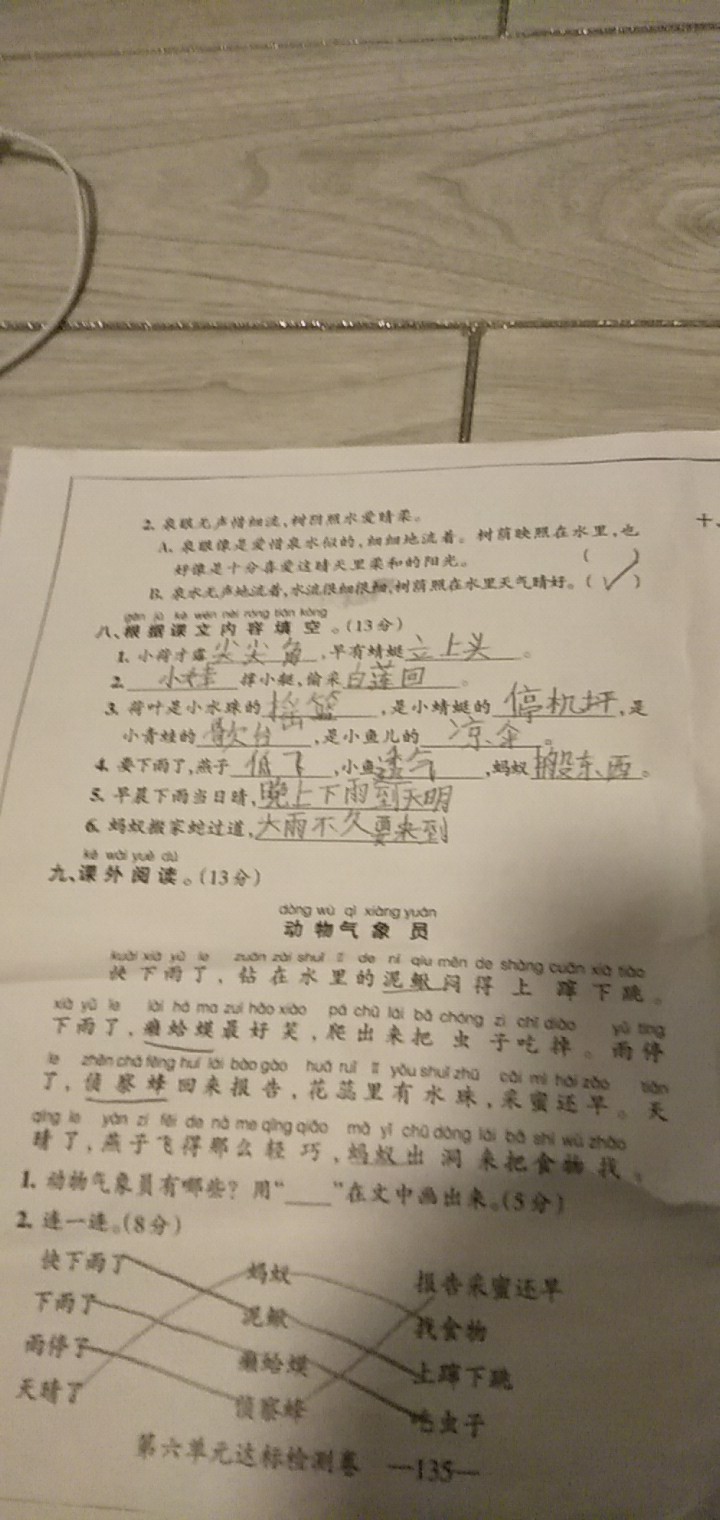 2. 泉眼无声惜细流,树阴照水爱晴柔。
A. 泉眼像是爱惜泉水似的,细细地流着。树荫映照在水里,也
好像是十分喜爱这晴天里柔和的阳光。 ( )
B. 泉水无声地流着,水流很细很细,树荫照在水里天气晴好。(✓)
gēn jù kè wén nèi róng tián kòng
八、根据课文内容填空。(13分)
1. 小荷才露尖尖角,早有蜻蜓立上头。
2. 小娃撑小艇,偷采白莲回。
3. 荷叶是小水珠的摇篮,是小蜻蜓的停机坪,是
小青蛙的歌台,是小鱼儿的凉伞。
4. 要下雨了,燕子低飞,小鱼透气,蚂蚁搬东西。
5. 早晨下雨当日晴,晚上下雨到天明
6. 蚂蚁搬家蛇过道,大雨不久要来到
kè wài yuè dú
九、课外阅读。(13分)
dòng wù qì xiàng yuán
动物气象员
kuài xià yǔ le zuān zài shuǐ lǐ de ní qiu mēn de shàng cuān xià tiào
快下雨了,钻在水里的泥鳅闷得上蹿下跳。
xià yǔ le lài há ma zuì hǎo xiào pá chū lái bǎ chóng zi chī diào yǔ tíng
下雨了,癞蛤蟆最好笑,爬出来把虫子吃掉。雨停
le zhēn chá fēng huí lái bào gào huā ruǐ lǐ yǒu shuǐ zhū cǎi mì hái zǎo tiān
了,侦察蜂回来报告,花蕊里有水珠,采蜜还早。天
qíng le yàn zi fēi de nà me qīng qiǎo mǎ yǐ chū dòng lái bǎ shí wù zhǎo
晴了,燕子飞得那么轻巧,蚂蚁出洞来把食物找。
1. 动物气象员有哪些?用“____”在文中画出来。(5分)
2. 连一连。(8分)
快下雨了 蚂蚁 报告采蜜还早
下雨了 泥鳅 找食物
雨停了 癞蛤蟆 上蹿下跳
天晴了 侦察蜂 吃虫子
第六单元达标检测卷 —135—
十、